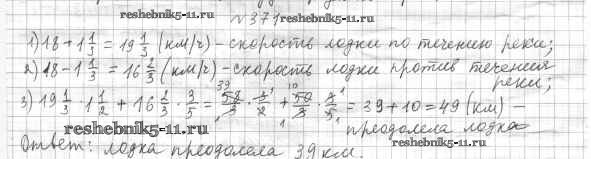 reshebnik5-11.ru
№371
reshebnik5-11.ru
1) 18 + 1 1/3 = 19 1/3 (км/ч) – скорость лодки по течению реки;
2) 18 – 1 1/3 = 16 2/3 (км/ч) – скорость лодки против течения
реки;
3) 19 1/3 · 1 1/2 + 16 2/3 · 3/5 = 58/3 · 3/2 + 50/3 · 3/5 = 39 + 10 = 49 (км) –
преодолела лодка
reshebnik5-11.ru
Ответ: лодка преодолела 39 км.
reshebnik5-11.ru